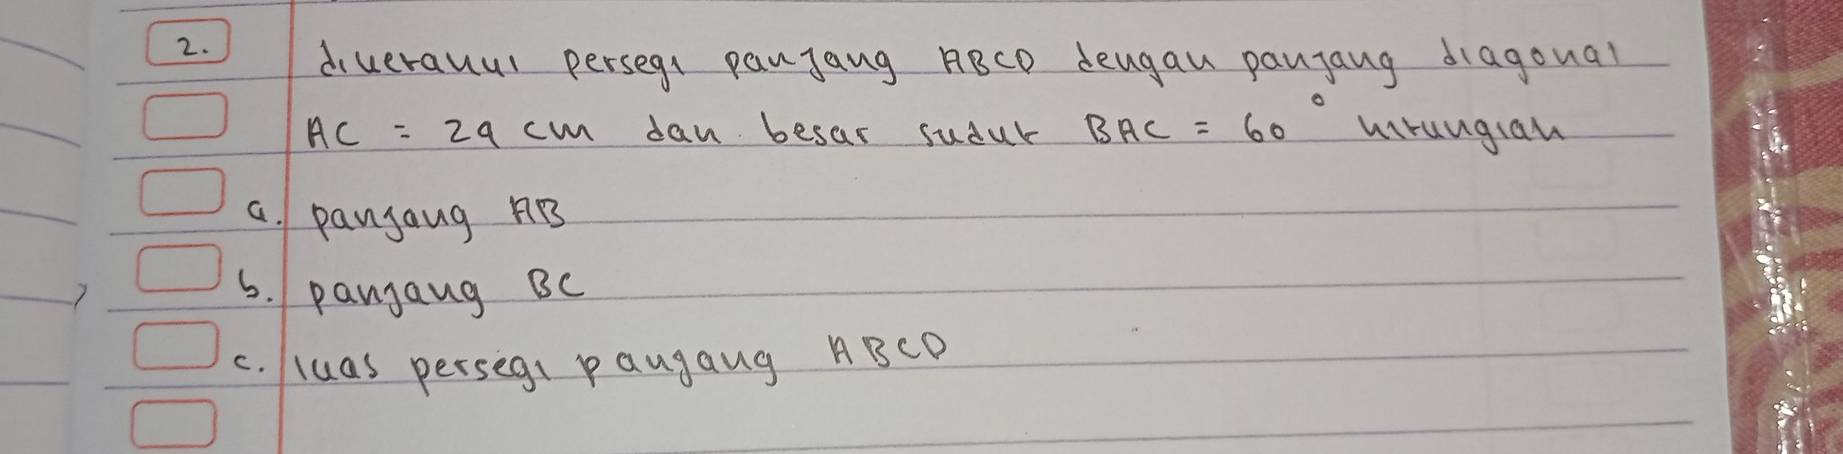 2. diketahui persegi panjang ABCD dengan panjang diagonal
AC = 24 cm dan besar sudut BAC = 60° hitunglah
a. panjang AB
b. panjang BC
c. luas persegi panjang ABCD